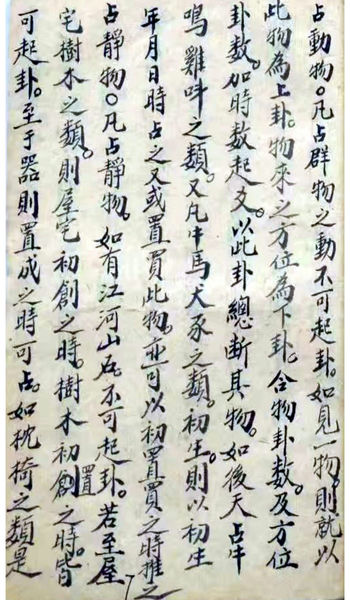 占動物。凡占群物之動不可起卦。如見一物。則就以
此物為上卦。物來之方位為下卦。合物卦数及方位
卦数。加時数起爻。以此卦總断其物。如後天占牛
鳴雞叫之類。又凡牛馬犬豕之類。初生。則以初生
年月日時占之又或置買此物。亦可以初置買之時推之
占靜物。凡占靜物。如有江河山石。不可起卦。若至屋
宅樹木之類。則屋宅初創之時。樹木初創置之時。皆
可起卦。至于器則置成之時可占。如枕椅之類是